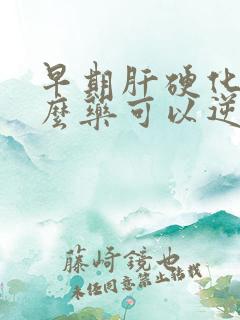 早期肝硬化
麼藥可以逆
藤崎鏡也
未經同意禁止轉載